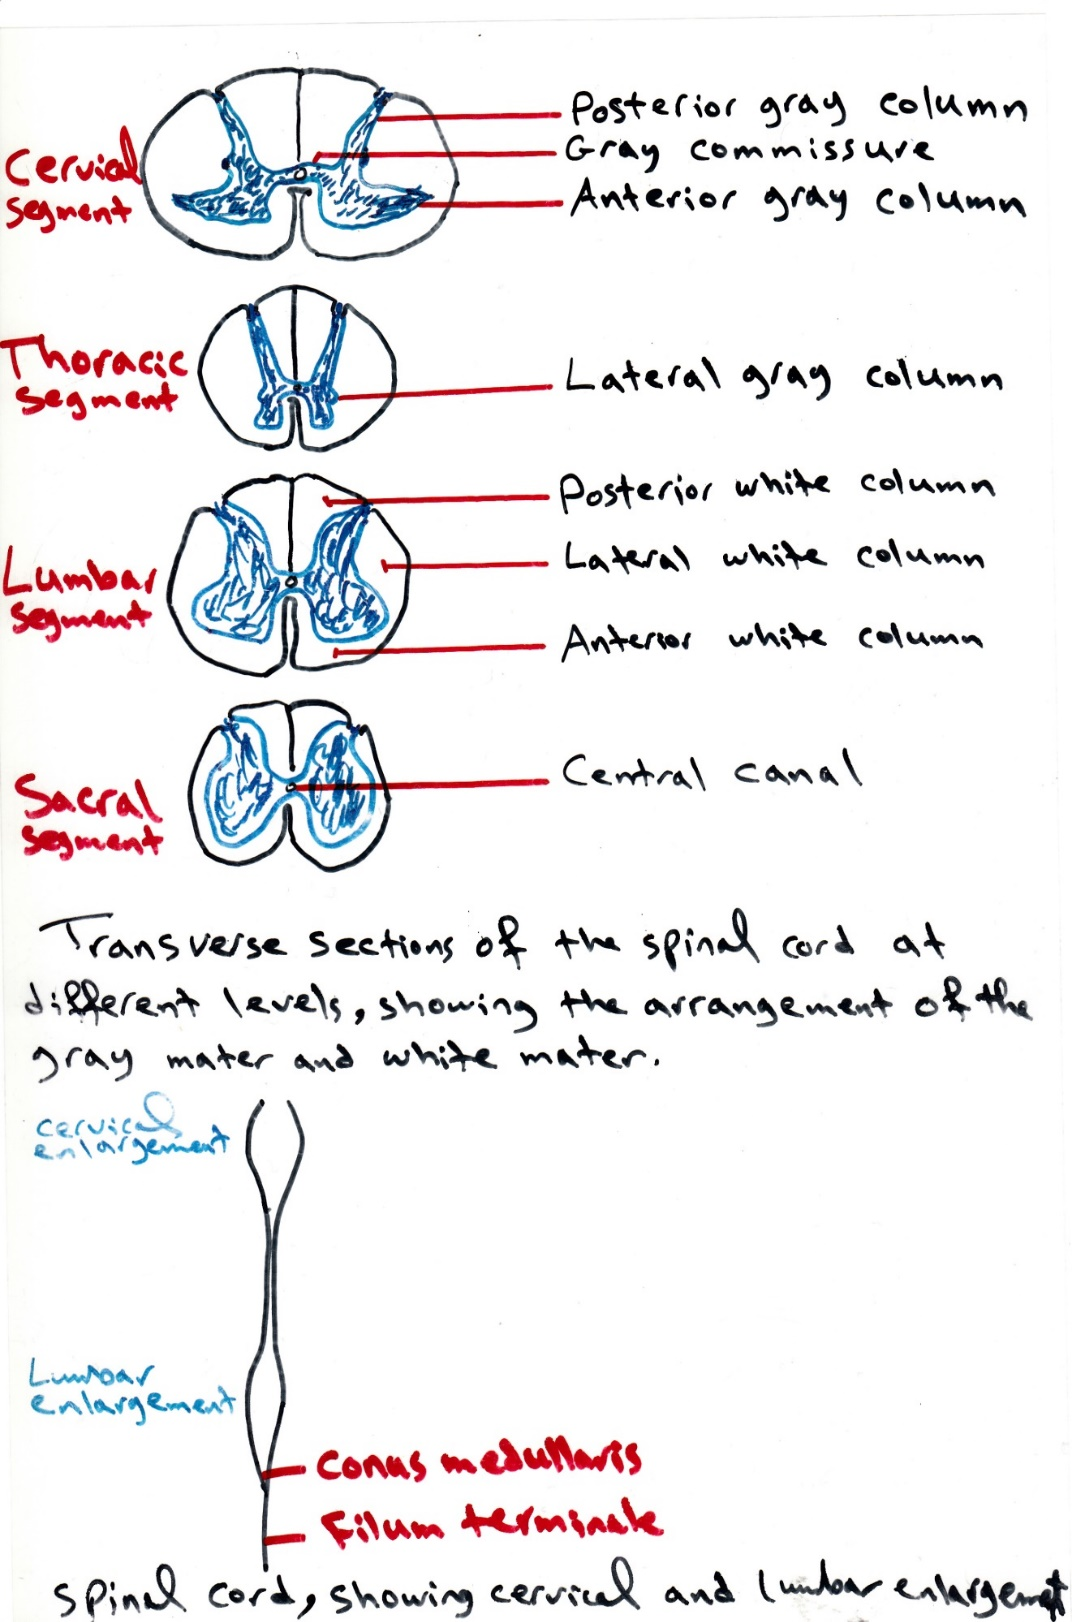 Cervical
segment
Posterior gray column
Gray commissure
Anterior gray column
Thoracic
segment
Lateral gray column
Lumbar
segment
Posterior white column
Lateral white column
Anterior white column
Sacral
segment
Central canal
Transverse sections of the spinal cord at
different levels, showing the arrangement of the
gray mater and white mater.
cervical
enlargement
Lumbar
enlargement
Conus medullaris
Filum terminale
spinal cord, showing cervical and lumbar enlargement